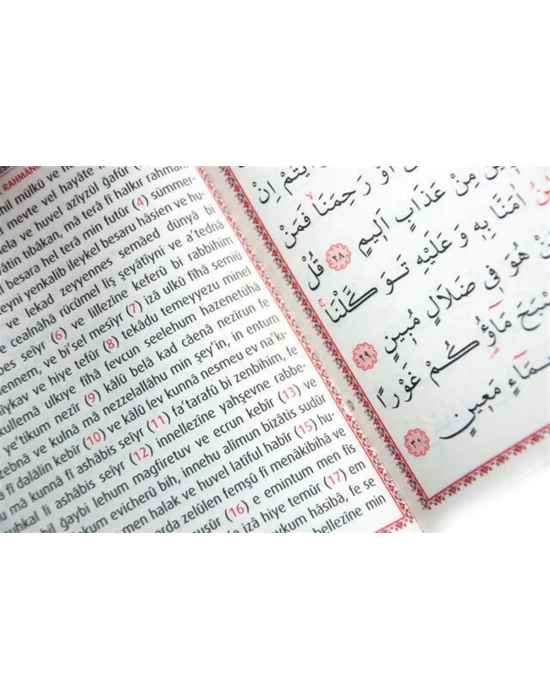 RAHMAN
mil mülkü ve
l mevte vel hayâte
ela ve huvel azîyzül gafûr
vâtin tıbâkan, mâ terâ fî halkır rahmân
l besara hel terâ min futûr (4) sümmer-
eyni yenkalib ileykel besaru hâsien ve hu-
ve lekad zeyyennes semâed dünyâ bi
e cealnâhâ rücûmel liş şeyâtîyni ve a'tednâ
bes seiyr (6) ve lillezîne keferû bi rabbihim
ennem, ve bi'sel mesîyr (7) izâ ulkû fîhâ semiû
hîykav ve hiye tefûr (8) tekâdu temeyyezu minel
kullemâ ulkıye fîhâ fevcun seelehum hazenetühâ
e'tikum nezîr (9) kâlû belâ kad câenâ nezîrun fe
zebnâ ve kulnâ mâ nezzelallâhu min şey'in, in entum
â fî dalâlin kebîr (10) ve kâlû lev kunnâ nesmeu ev na'kı-
u mâ kunnâ fî ashâbis seiyr (11) fa'tarafû bi zenbihim, fe
uhkal li ashâbis seiyr (12) innellezîne yahşevne rabbe-
bil ğaybi lehum magfiretuv ve ecrun kebîr (13) ve
kum evicherû bih, innehu alîmun bizâtis sudûr
men halak ve huvel latîful habîr (15) hu-
arda zelûlen femşû fî menâkibihâ ve
uşûr (16) e emintum men fis
izâ hiye temûr (17) em
aykum hâsibâ, fe se
bellezîne min
اِنْ
اَوْ رَحِمَنَا فَمَنْ
مِنْ عَذَابٍ اَلِيمٍ ﴿٢٨﴾ قُلْ
اٰمَنَّا بِهِ وَعَلَيْهِ تَوَكَّلْنَا
هُوَ فِى ضَلَالٍ مُبِينٍ ﴿٢٩﴾
مَٓاؤُكُمْ غَوْرًا
مَعِينٍ ﴿٣٠﴾